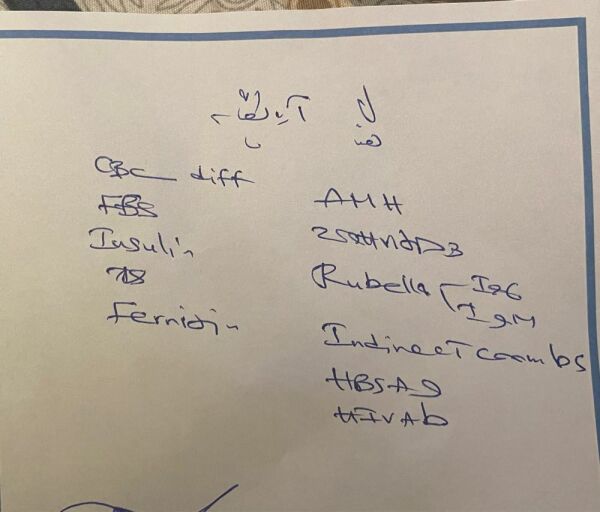 CBC diff
FBS
Insulin
Ferritin
AMH
25OHVitD3
Rubella IgG
IgM
Indirect coombs
HBSAg
HIVAb